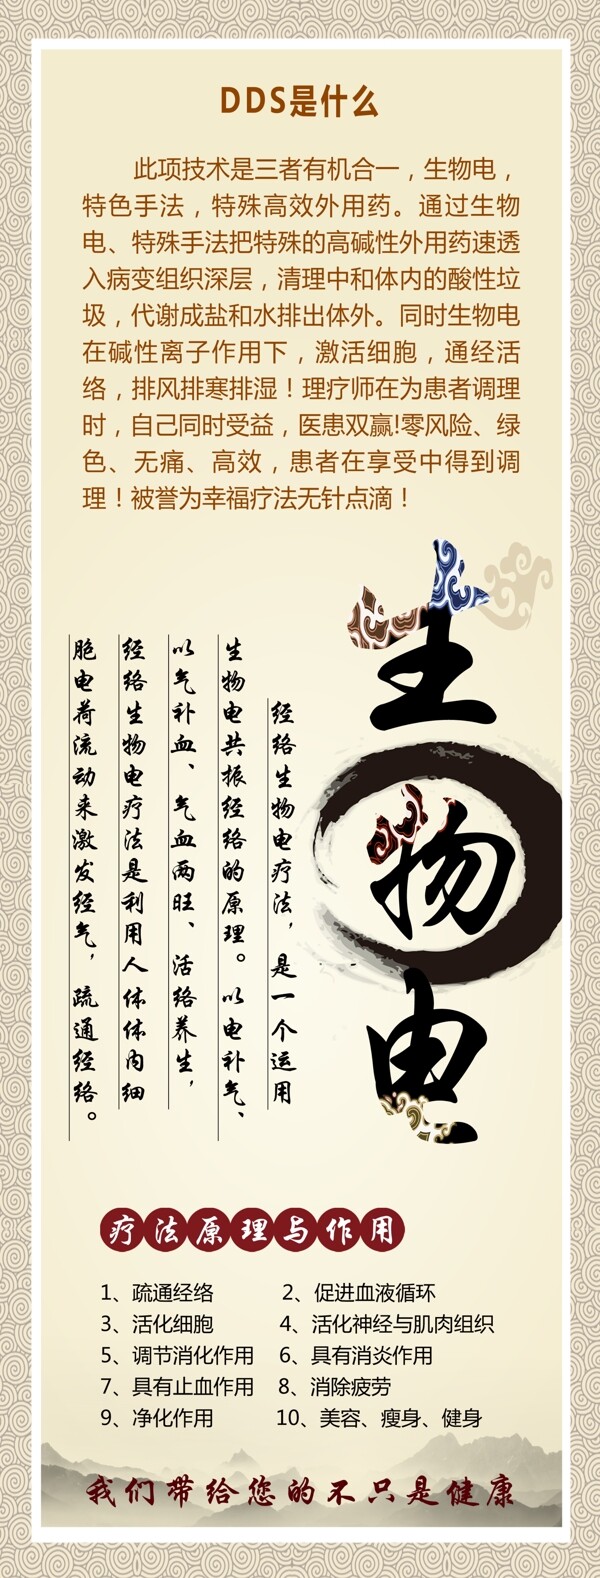 DDS是什么
此项技术是三者有机合一，生物电，
特色手法，特殊高效外用药。通过生物
电、特殊手法把特殊的高碱性外用药速透
入病变组织深层，清理中和体内的酸性垃
圾，代谢成盐和水排出体外。同时生物电
在碱性离子作用下，激活细胞，通经活
络，排风排寒排湿！理疗师在为患者调理
时，自己同时受益，医患双赢!零风险、绿
色、无痛、高效，患者在享受中得到调
理！被誉为幸福疗法无针点滴！
生物电
经络生物电疗法，是一个运用
生物电共振经络的原理。以电补气、
以气补血、气血两旺、活络养生，
经络生物电疗法是利用人体体内细
胞电荷流动来激发经气，疏通经络。
疗法原理与作用
1、疏通经络 2、促进血液循环
3、活化细胞 4、活化神经与肌肉组织
5、调节消化作用 6、具有消炎作用
7、具有止血作用 8、消除疲劳
9、净化作用 10、美容、瘦身、健身
我们带给您的不只是健康